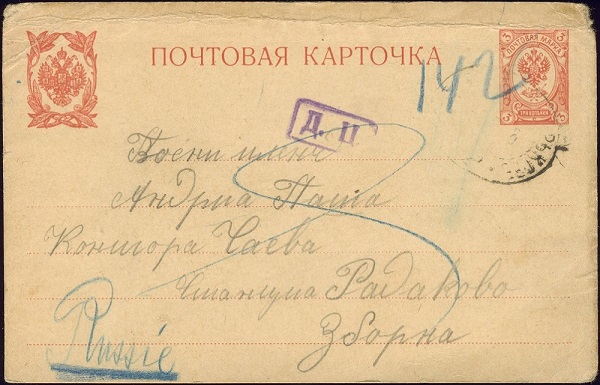 ПОЧТОВАЯ КАРТОЧКА
ПОЧТОВАЯ МАРКА
3 3
ТРИ КОПѢЙКИ
3 3
142
Д. Ц
Воени плене
Андриа Паша
Контора Чаева
Станциа Радаково
Зборна
Russie